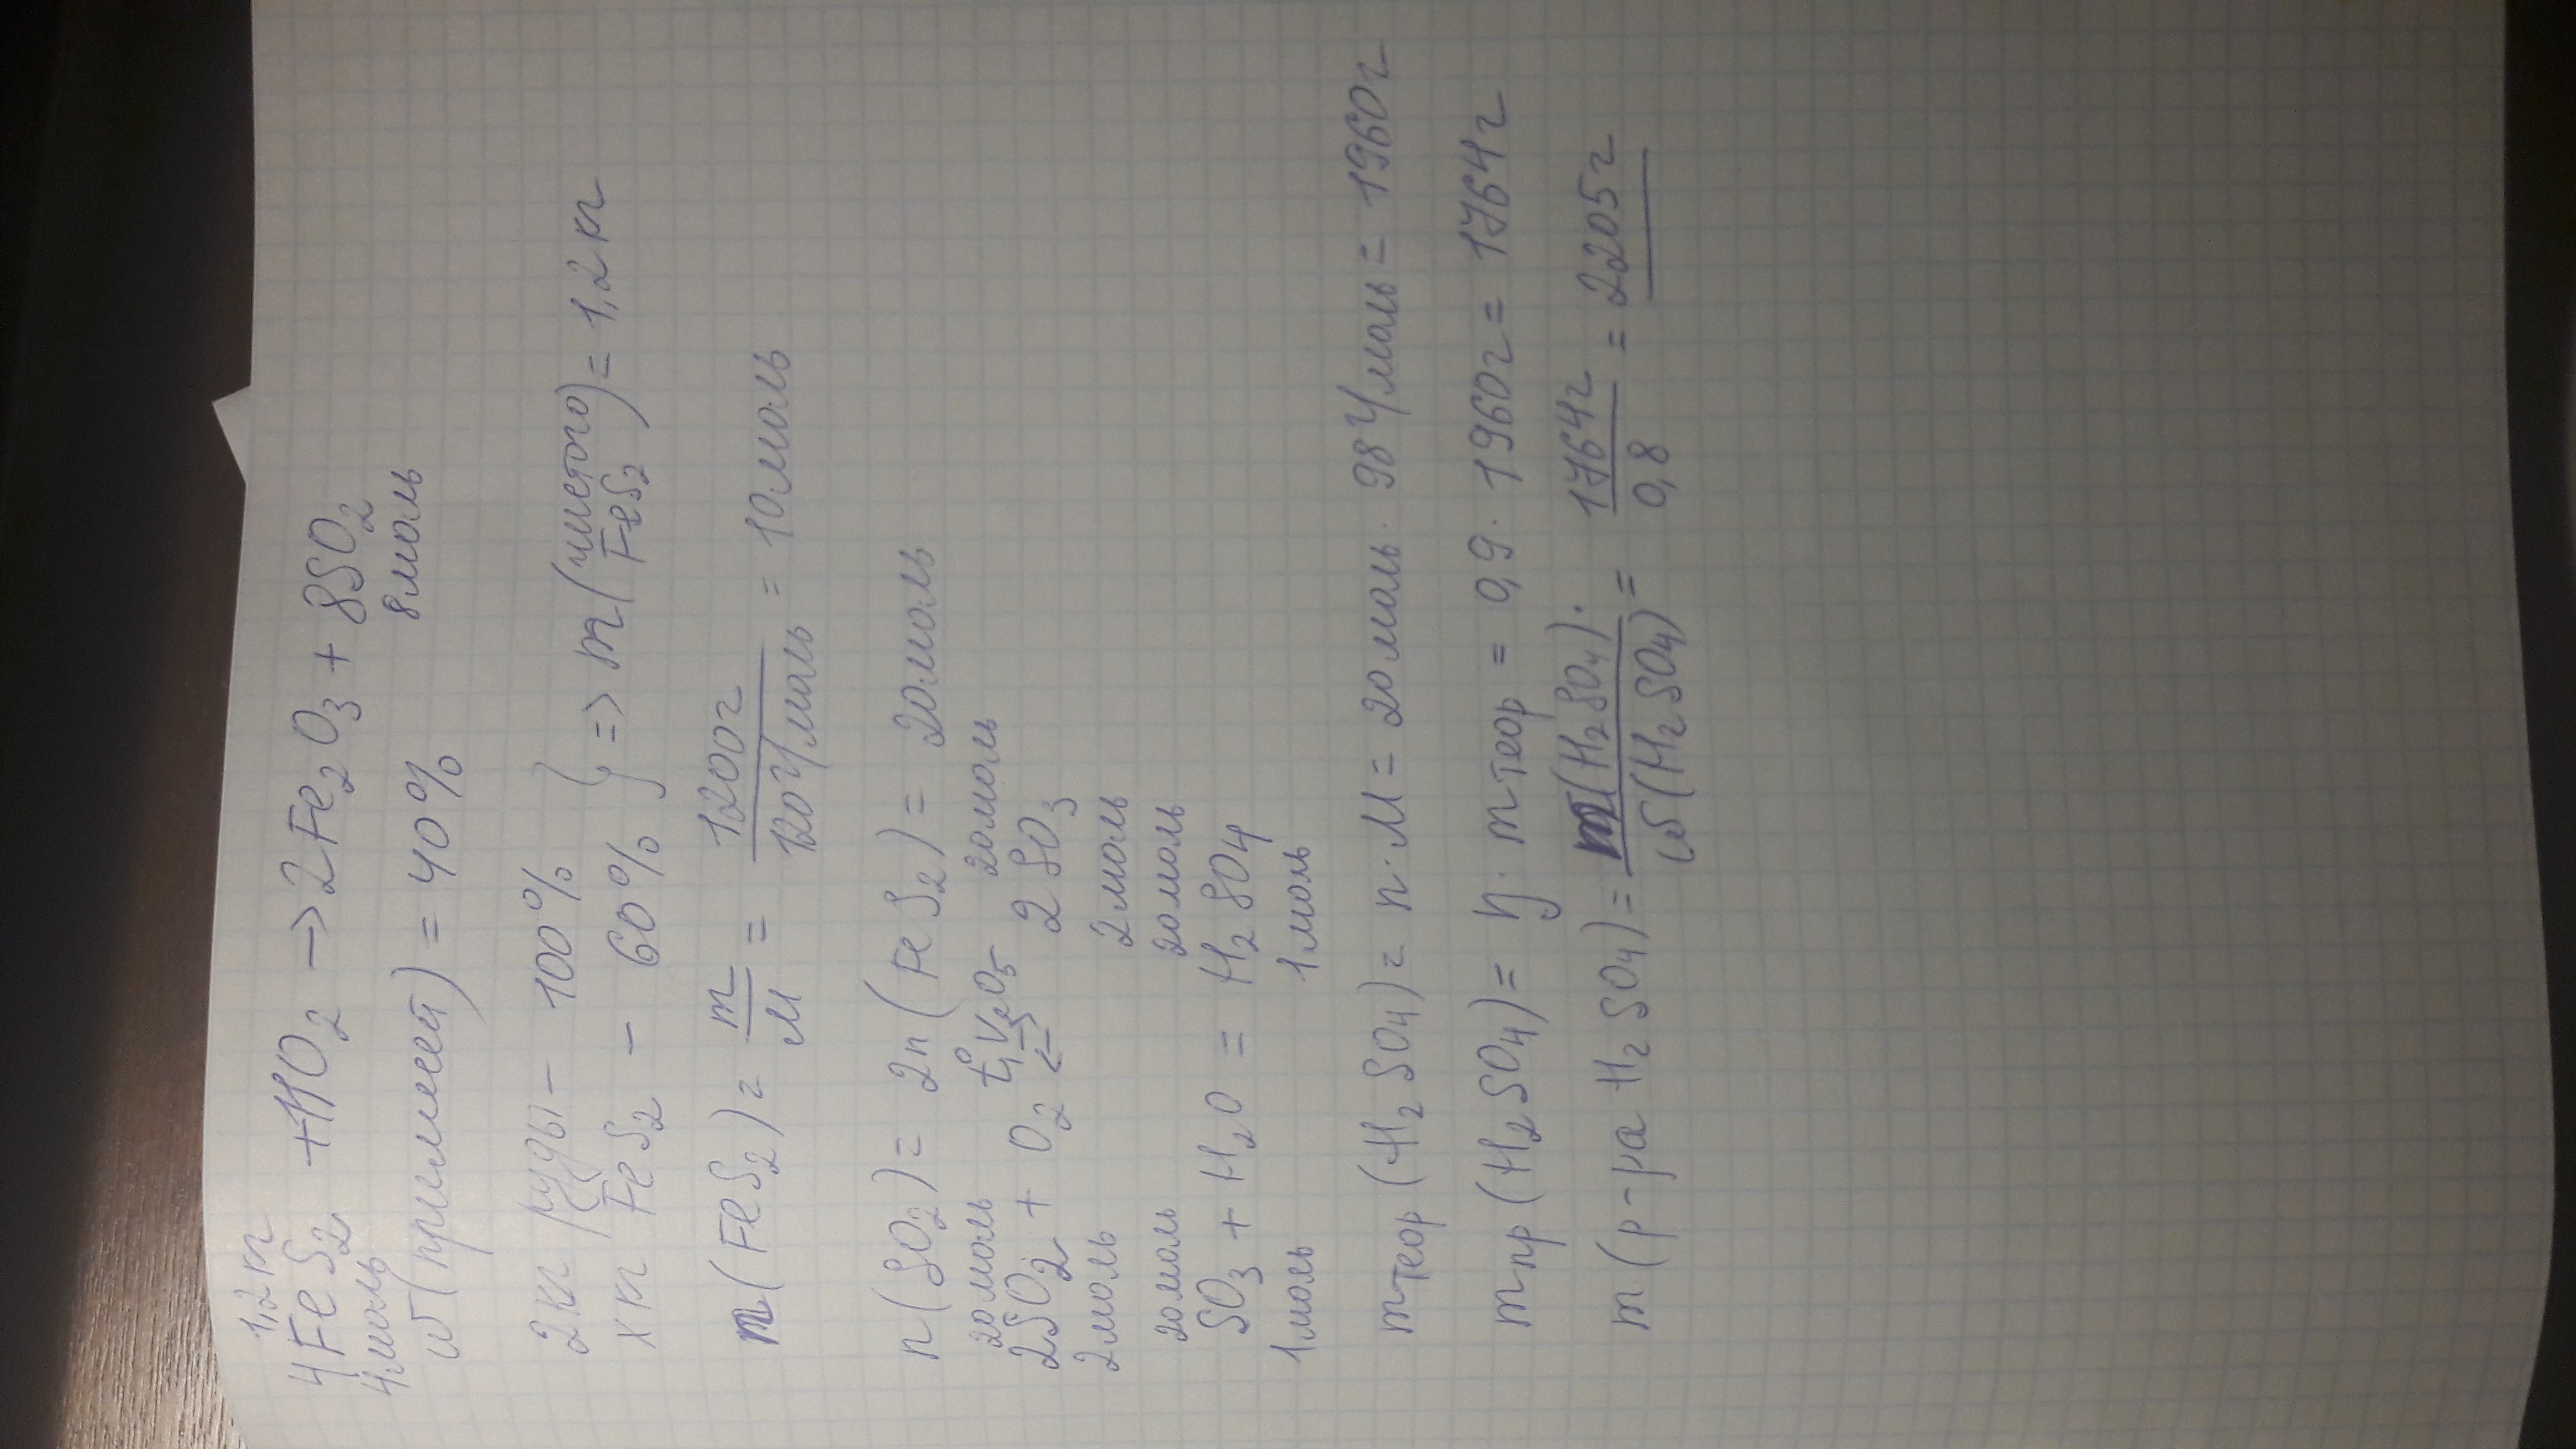 1,2кг
4FeS2 + 11O2 → 2Fe2O3 + 8SO2
4моль 8моль
ω(примесей) = 40%
2кг руды – 100% } => m(чистого FeS2) = 1,2кг
xкг FeS2 – 60%
m(FeS2) = m/M = 1200г/120г/моль = 10моль
n(SO2) = 2n(FeS2) = 20моль
20моль t°, V2O5 20моль
2SO2 + O2 ⇄ 2SO3
2моль 2моль
20моль 20моль
SO3 + H2O = H2SO4
1моль 1моль
mтеор(H2SO4) = n·M = 20моль · 98г/моль = 1960г
mпр(H2SO4) = η · mтеор = 0,9 · 1960г = 1764г
m(р-ра H2SO4) = m(H2SO4)·/ω(H2SO4) = 1764г/0,8 = 2205г